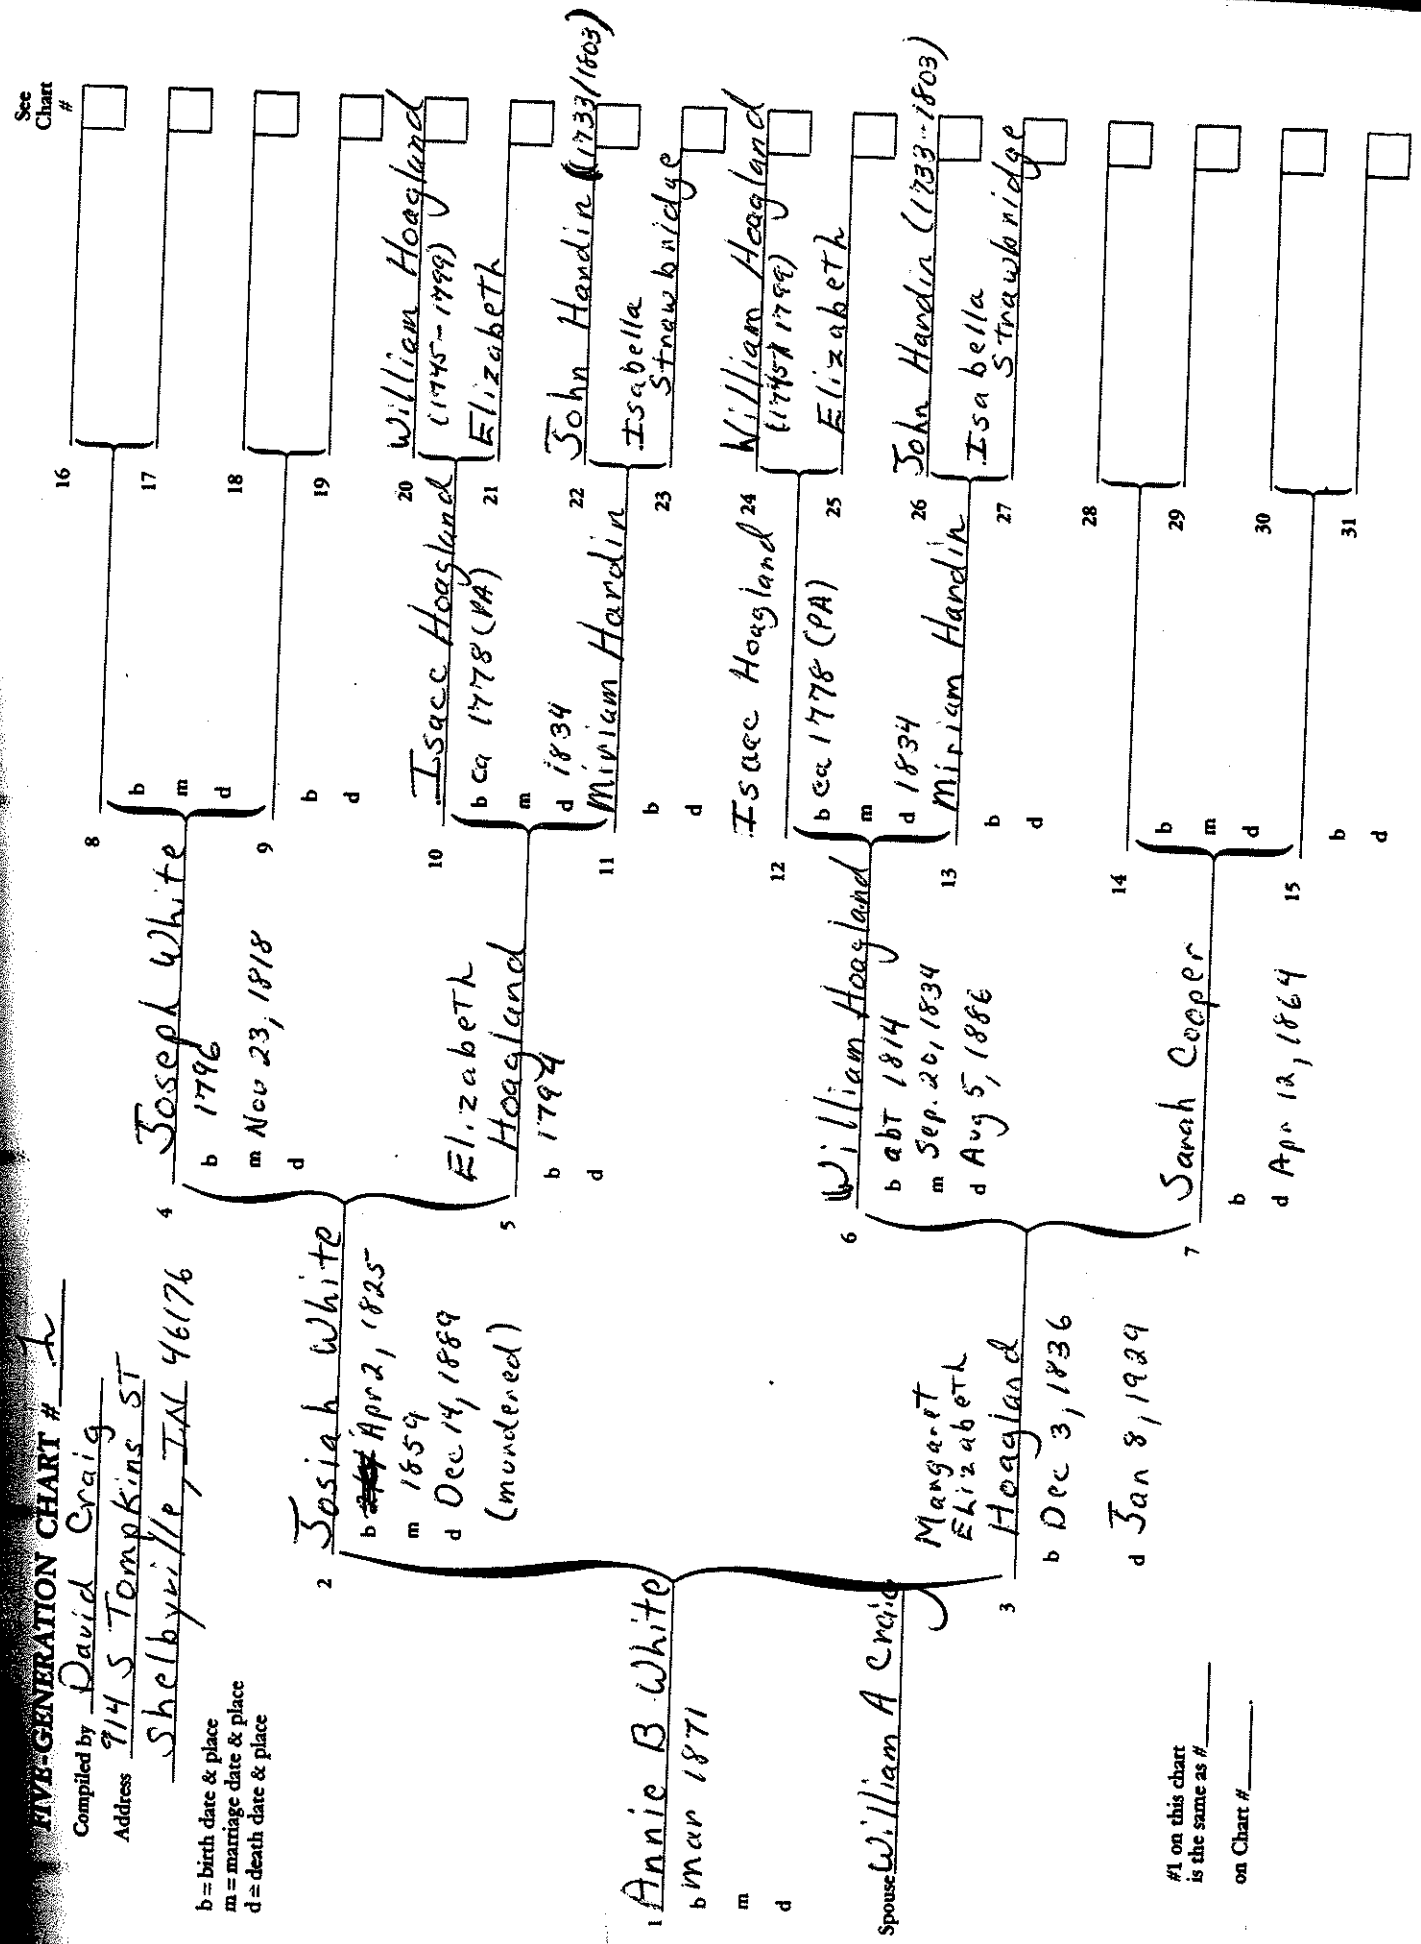 FIVE-GENERATION CHART # 1
Compiled by David Craig
Address 914 S Tompkins ST
Shelbyville, IN 46176
b = birth date & place
m = marriage date & place
d = death date & place
1 Annie B White
b Mar 1871
m
d
Spouse William A Craig
#1 on this chart
is the same as #
on Chart #
2 Josiah White
b Apr 2, 1825
m 1859
d Dec 14, 1889
(murdered)
3 Margaret
Elizabeth
Hoagland
b Dec 3, 1836
d Jan 8, 1929
4 Joseph White
b 1796
m Nov 23, 1818
d
5 Elizabeth
Hoagland
b 1794
d
6 William Hoagland
b abt 1814
m Sep. 20, 1834
d Aug 5, 1886
7 Sarah Cooper
b
d Apr 12, 1864
8
b
m
d
9
b
d
10 Isacc Hoagland
b ca 1778 (PA)
m
d 1834
11 Miriam Hardin
b
d
12 Isaac Hoagland
b ca 1778 (PA)
m
d 1834
13 Miriam Hardin
b
d
14
b
m
d
15
b
d
See
Chart
#
16
17
18
19
20 William Hoagland
(1745-1799)
21 Elizabeth
22 John Hardin (1733/1803)
23 Isabella
Strawbridge
24 William Hoagland
(1745/1799)
25 Elizabeth
26 John Hardin (1733-1803)
27 Isabella
Strawbridge
28
29
30
31